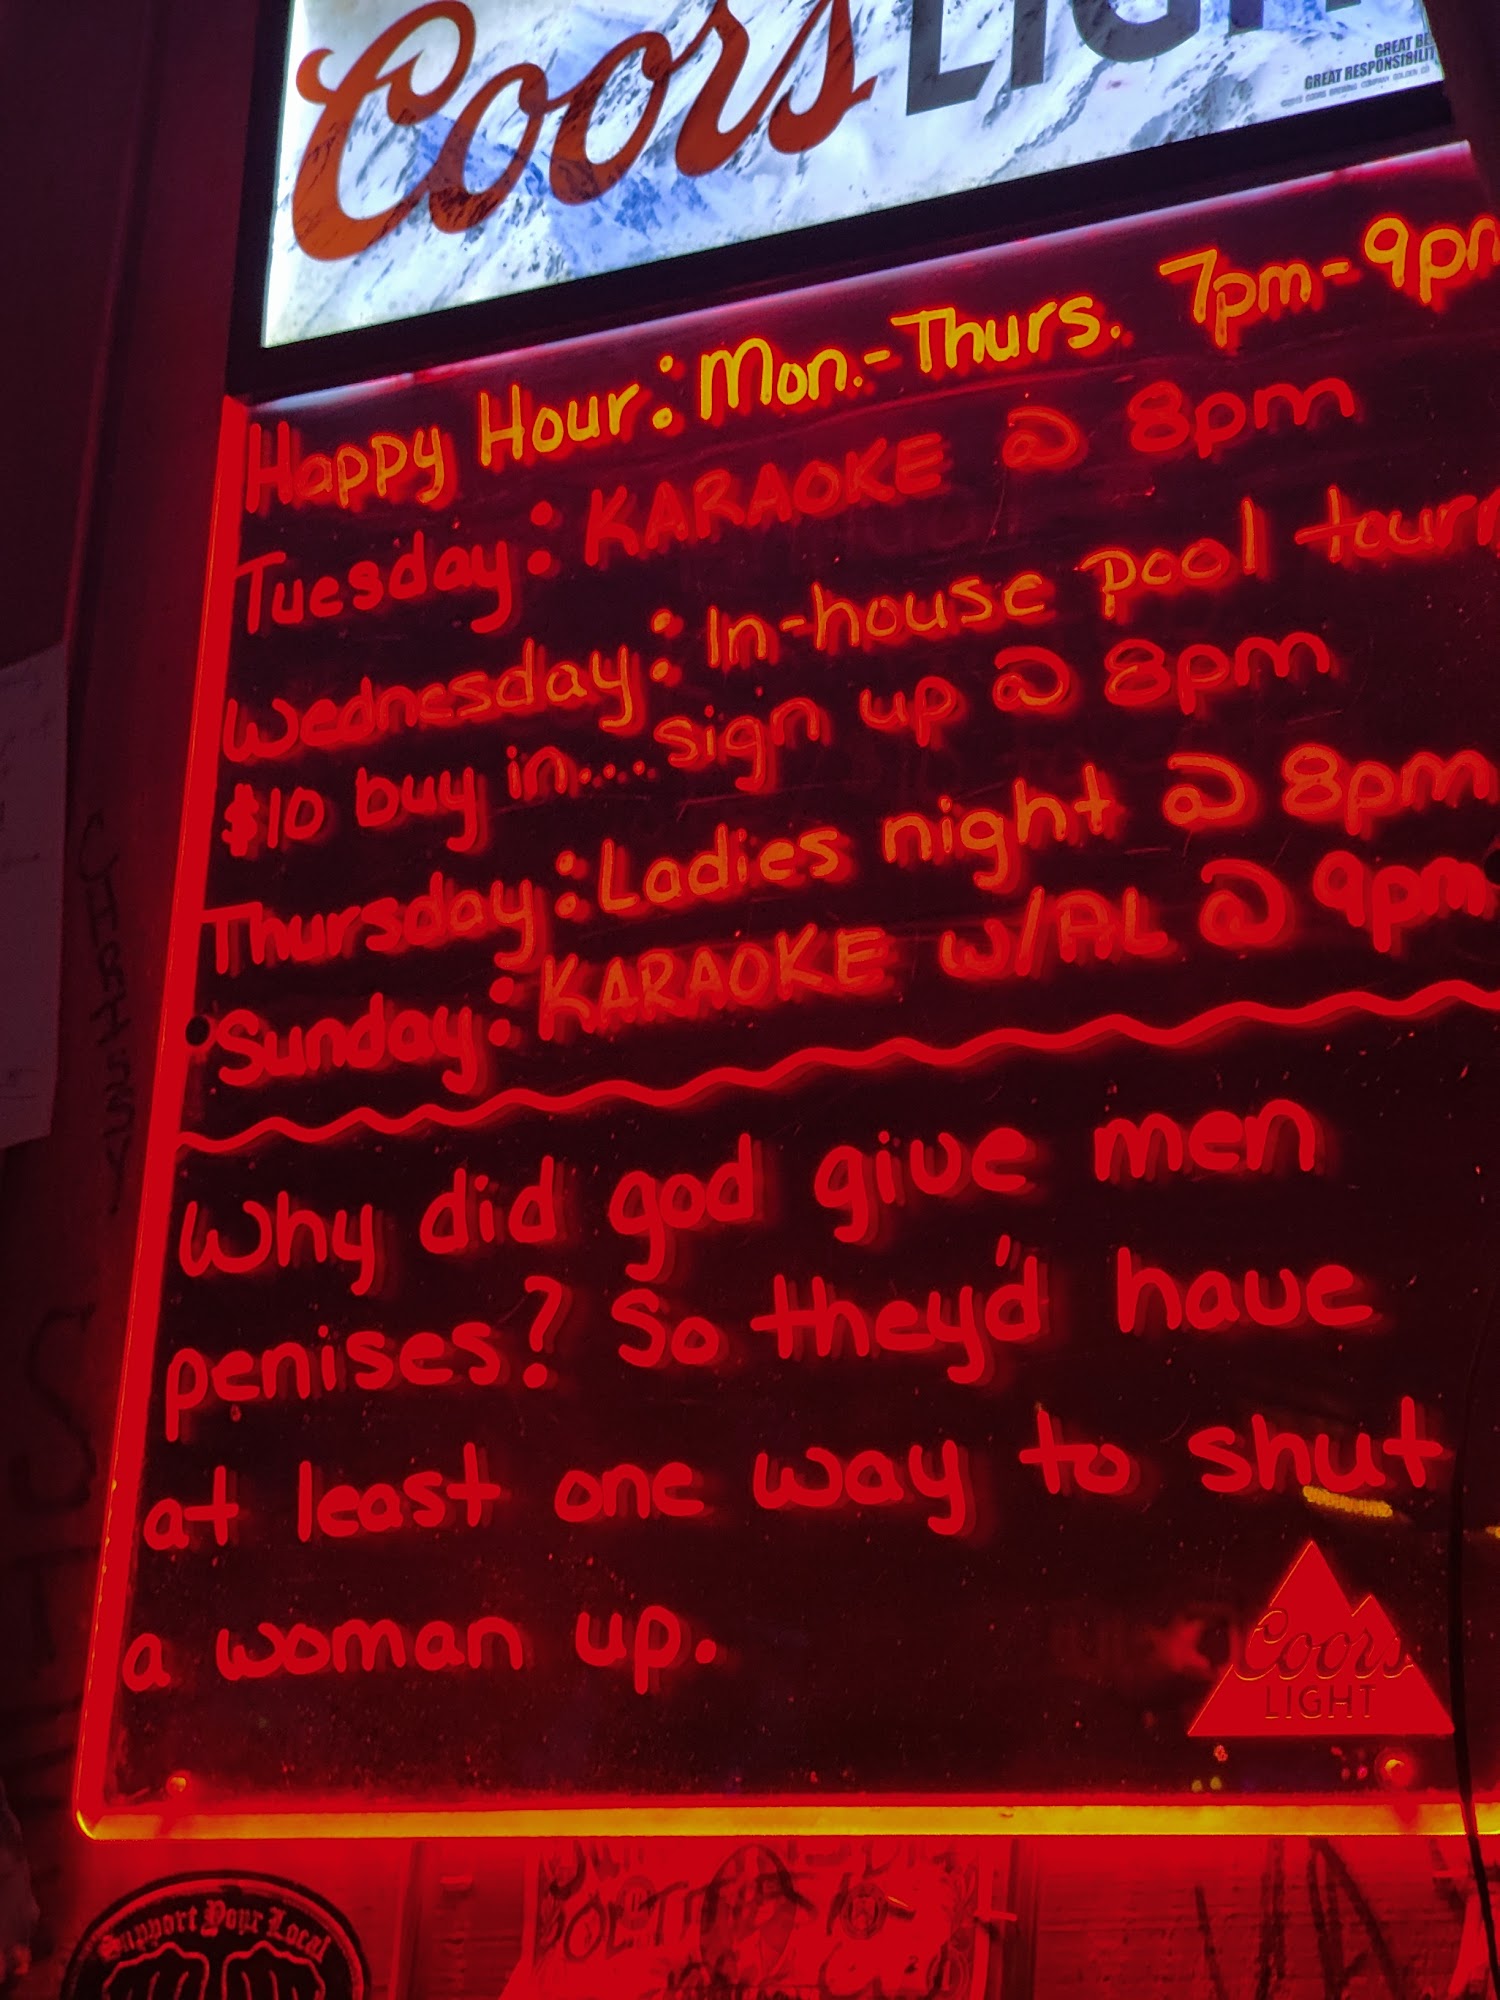 Coors LIGHT
GREAT BE
GREAT RESPONSIBILIT
Happy Hour: Mon.-Thurs. 7pm-9pm
Tuesday: KARAOKE @ 8pm
Wednesday: In-house pool tourn
$10 buy in.... sign up @ 8pm
Thursday: Ladies night @ 8pm
Sunday: KARAOKE w/AL @ 9pm
Why did god give men
penises? So they'd have
at least one way to shut
a woman up.
Coors
LIGHT
Support Your Local